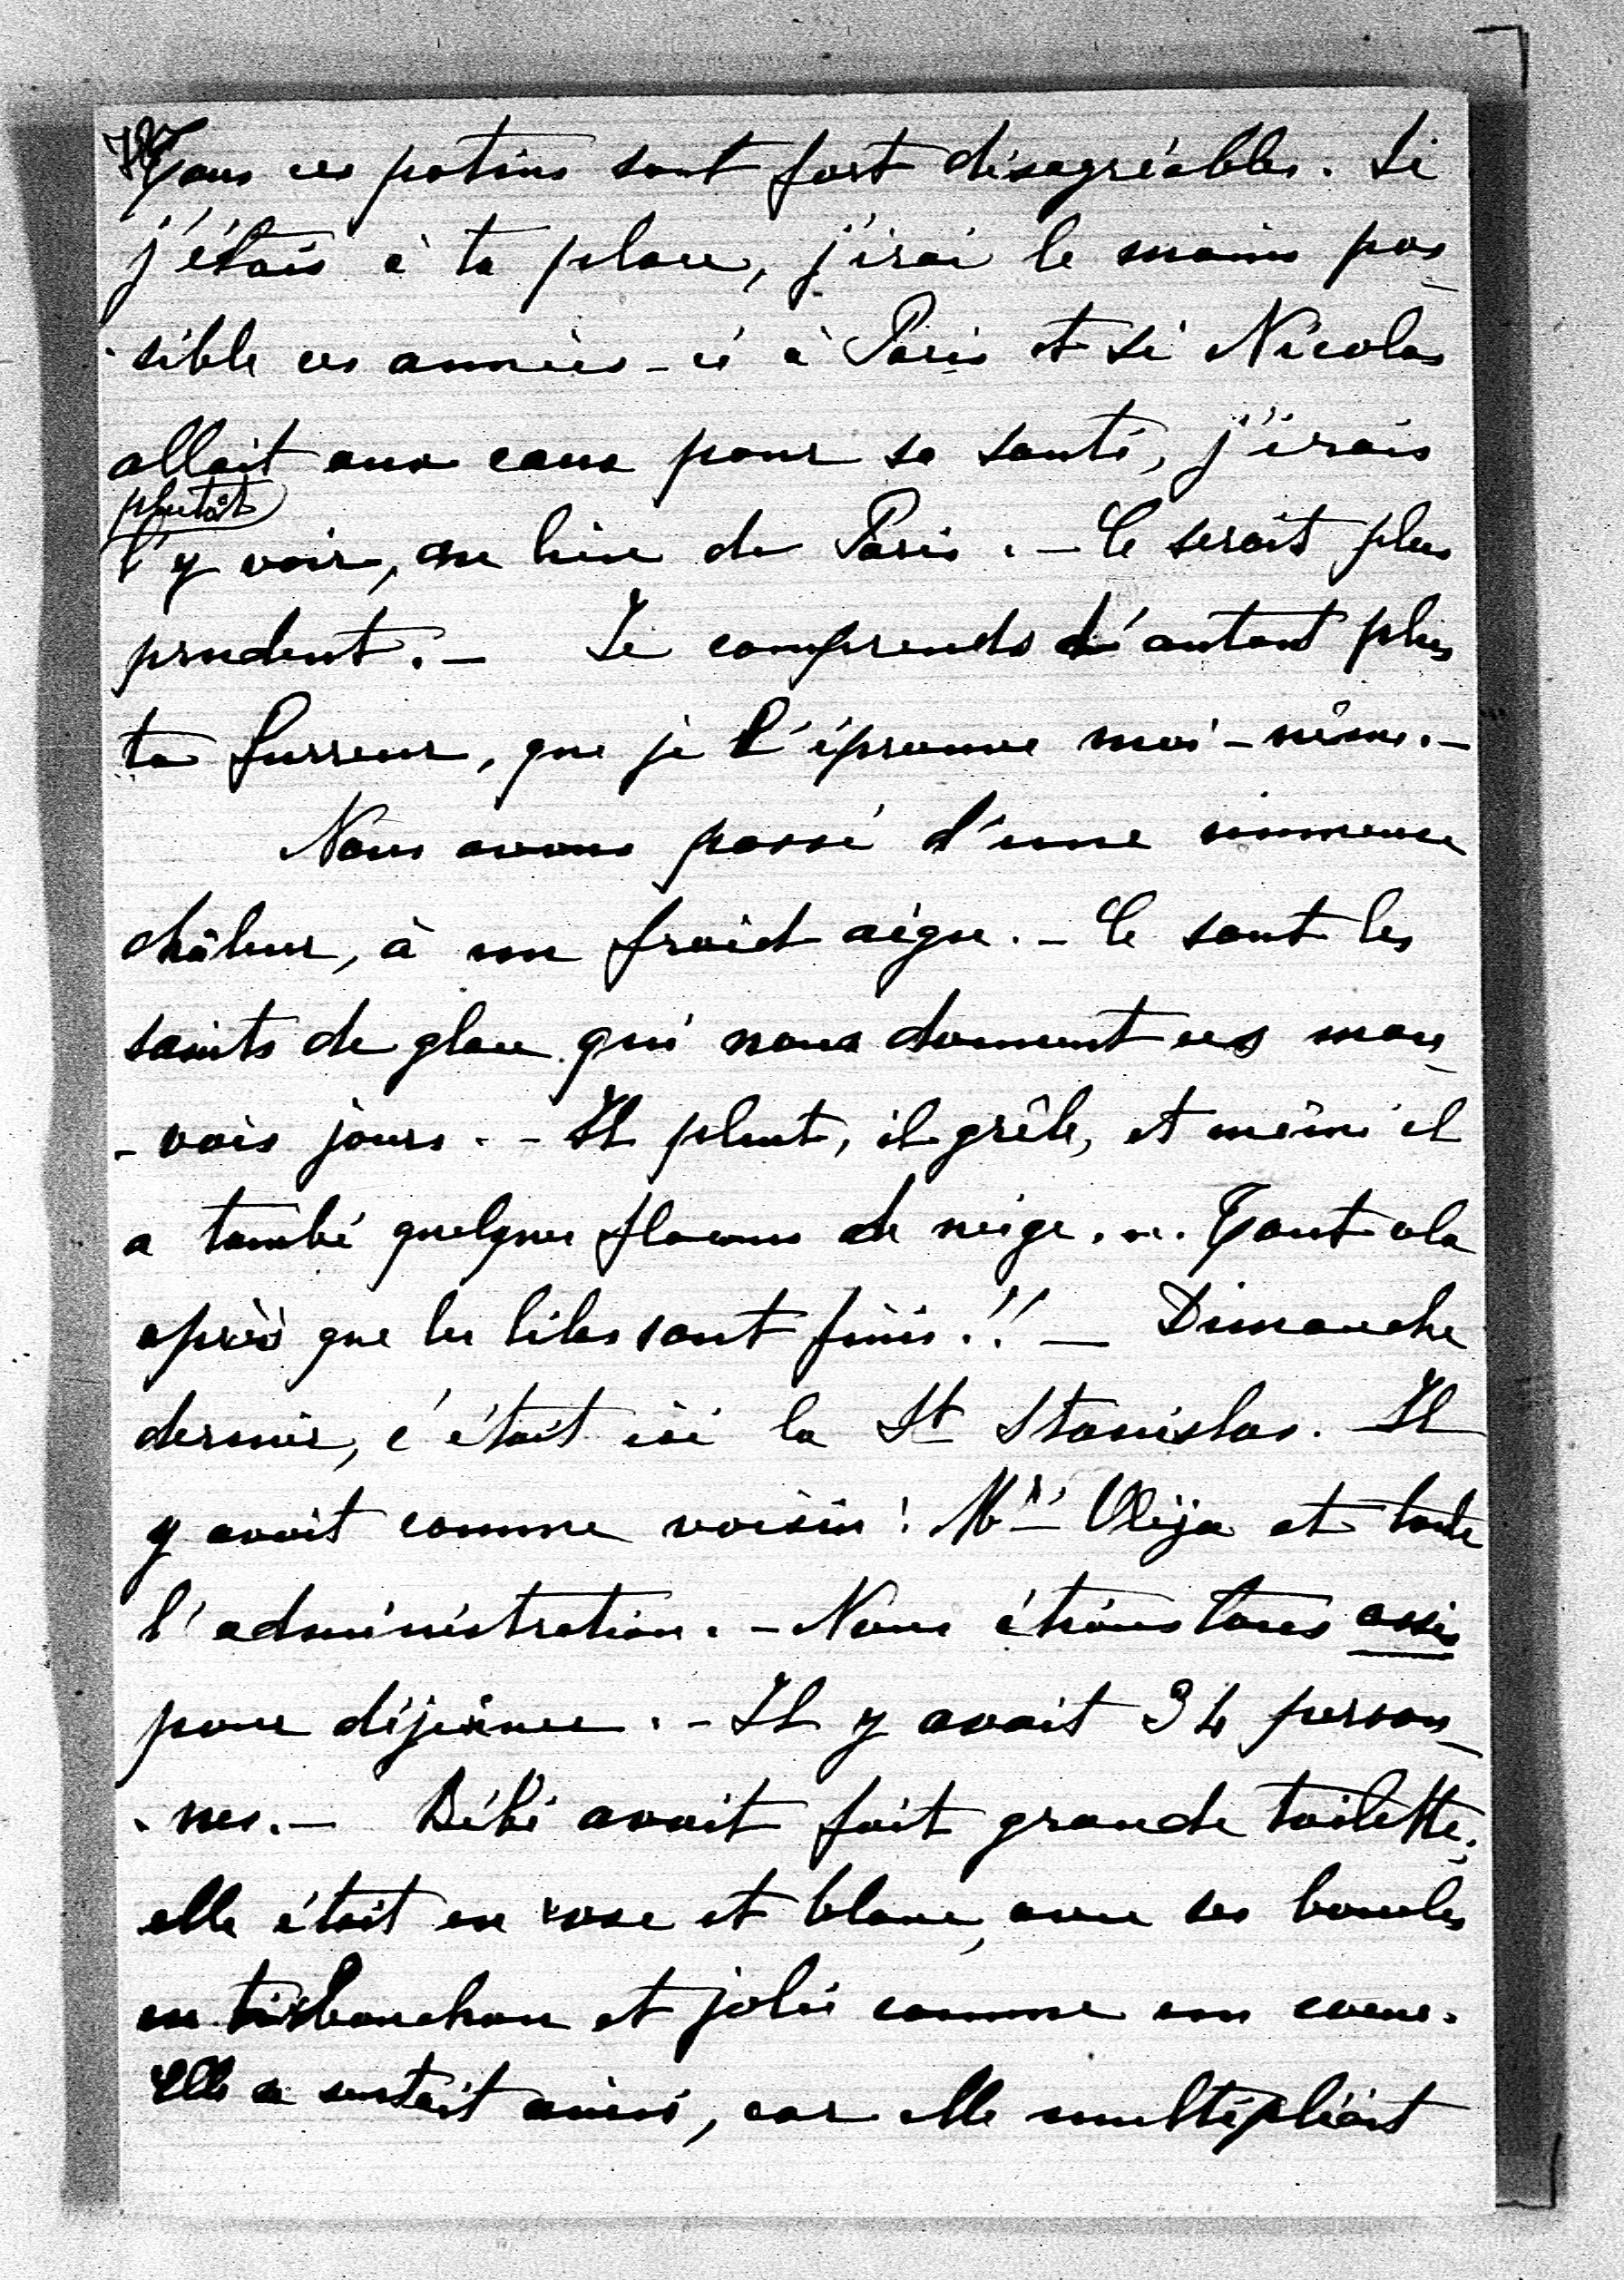 Tous ces potins sont fort désagréables. Si
j'étais à ta place, j'irai le moins pos-
-sible ces années-ci à Paris et si Nicolas
allait aux eaux pour sa santé, j'irais
plutôt
l'y voir, au lieu de Paris. - Ce serait plus
prudent. - Je comprends d'autant plus
ta furreur, que je l'éprouve moi-même. -
Nous avons passé d'une immense
châleur, à un froid aigu. - Ce sont les
saints de glace qui nous donnent ces mau-
-vais jours. - Il pleut, il grêle, et même il
a tombé quelques flocons de neige... Tout cela
après que les lilas sont finis!! - Dimanche
dernier, c'était ici la St Stanislas. Il
y avait comme voisin: Mr et toute
l'administration. - Nous étions tous assis
pour déjeûner. - Il y avait 34 person-
-nes. - Bébé avait fait grande toilette;
elle était en rose et blanc, avec ses boucles
en tirbouchon et jolie comme un coeur.
Elle se sentait ainsi, car elle multipliait